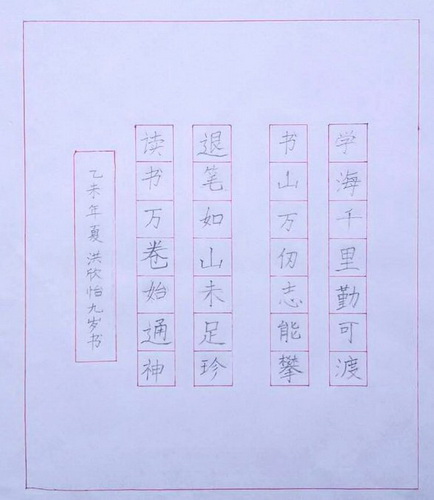 学海千里勤可渡
书山万仞志能攀
退笔如山未足珍
读书万卷始通神
乙未年夏洪欣怡九岁书